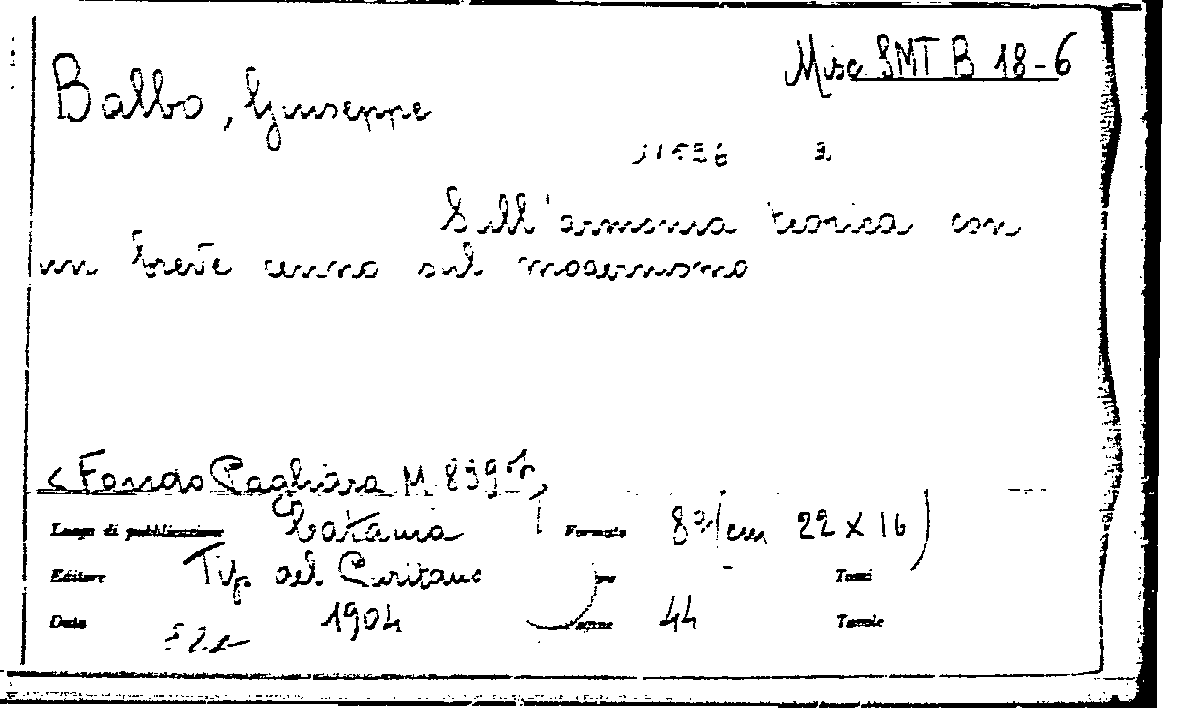 Misc SMT B 18-6
Balbo, Giuseppe
11536
Sull'armonia teorica con
un breve cenno sul modernismo
<Fondo Pagliara M. 839
Luogo di pubblicazione Catania Formato 8°/cm 22 x 16)
Editore Tip. del Puritano Tomi
Data 1904 44 Tavole